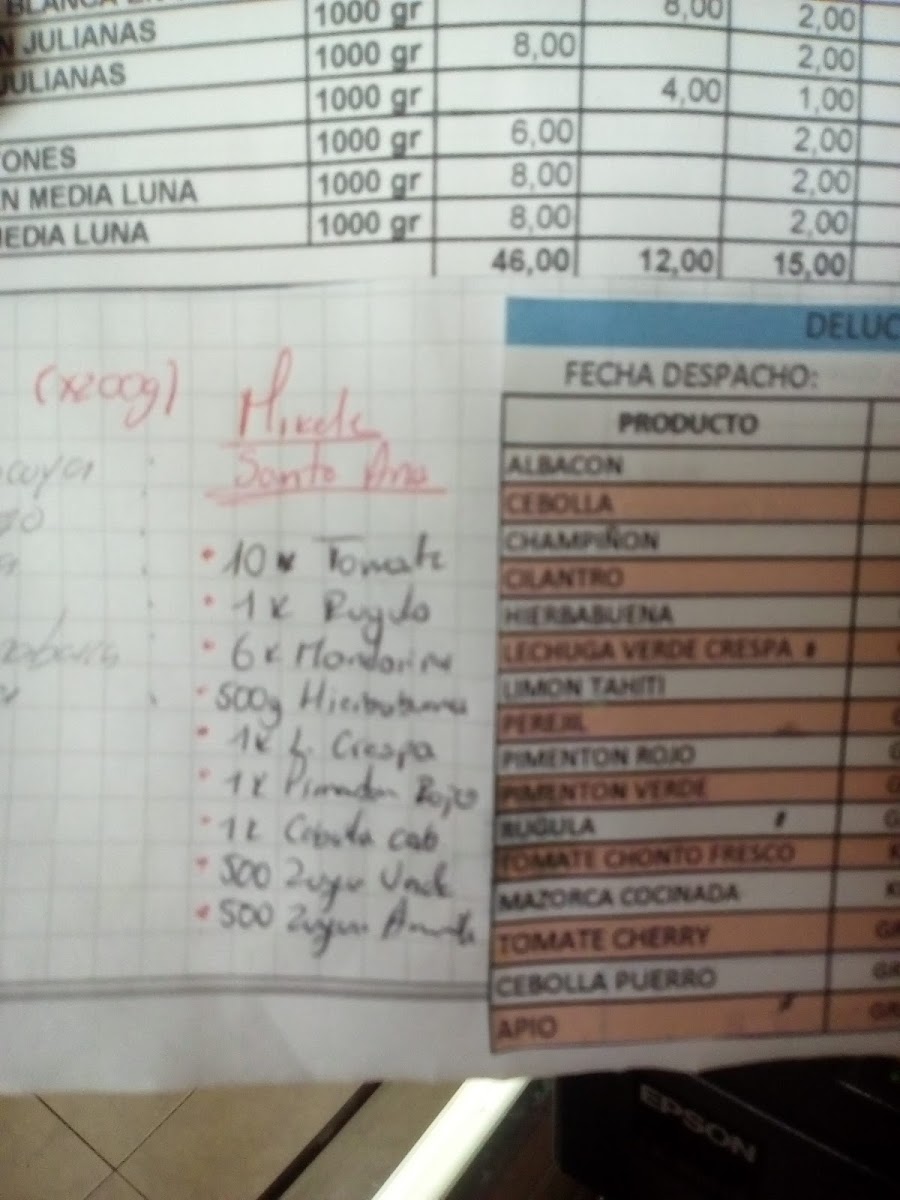 1000 gr 8,00 2,00
N JULIANAS 1000 gr 8,00 2,00
JULIANAS 1000 gr 4,00 1,00
ONES 1000 gr 6,00 2,00
N MEDIA LUNA 1000 gr 8,00 2,00
MEDIA LUNA 1000 gr 8,00 2,00
46,00 12,00 15,00
(x200g)
Santa Ana
• 10 K Tomate
• 1 K Rugula
• 6 K Mandarina
• 500g Hierbabuena
• 1K L. Crespa
• 1 K Pimenton Rojo
• 1K Cebolla cab
• 500
• 500
DELUC
FECHA DESPACHO:
PRODUCTO
ALBACON
CEBOLLA
CHAMPIÑON
CILANTRO
HIERBABUENA
LECHUGA VERDE CRESPA
LIMON TAHITI
PEREJIL
PIMENTON ROJO
PIMENTON VERDE
RUGULA
TOMATE CHONTO FRESCO
MAZORCA COCINADA
TOMATE CHERRY
CEBOLLA PUERRO
APIO
EPSON